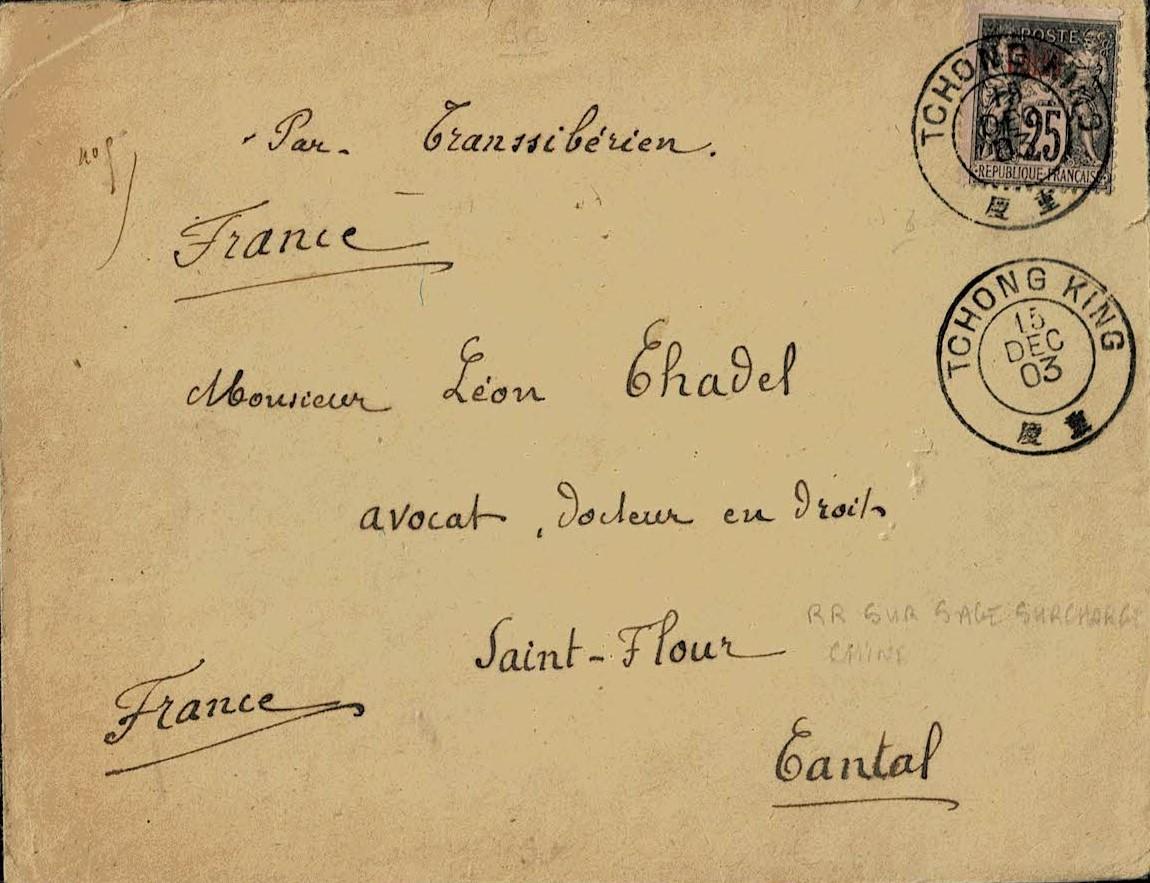 POSTE
Chine
25
REPUBLIQUE FRANCAISE
TCHONG KING
DEC
03
慶 重
nº 5
Par Transsibérien.
France
TCHONG KING
15
DEC
03
慶 重
Monsieur Léon Chadel
avocat, docteur en droit
Saint-Flour
RR SUR SAGE SURCHARGE
CHINE
France
Cantal